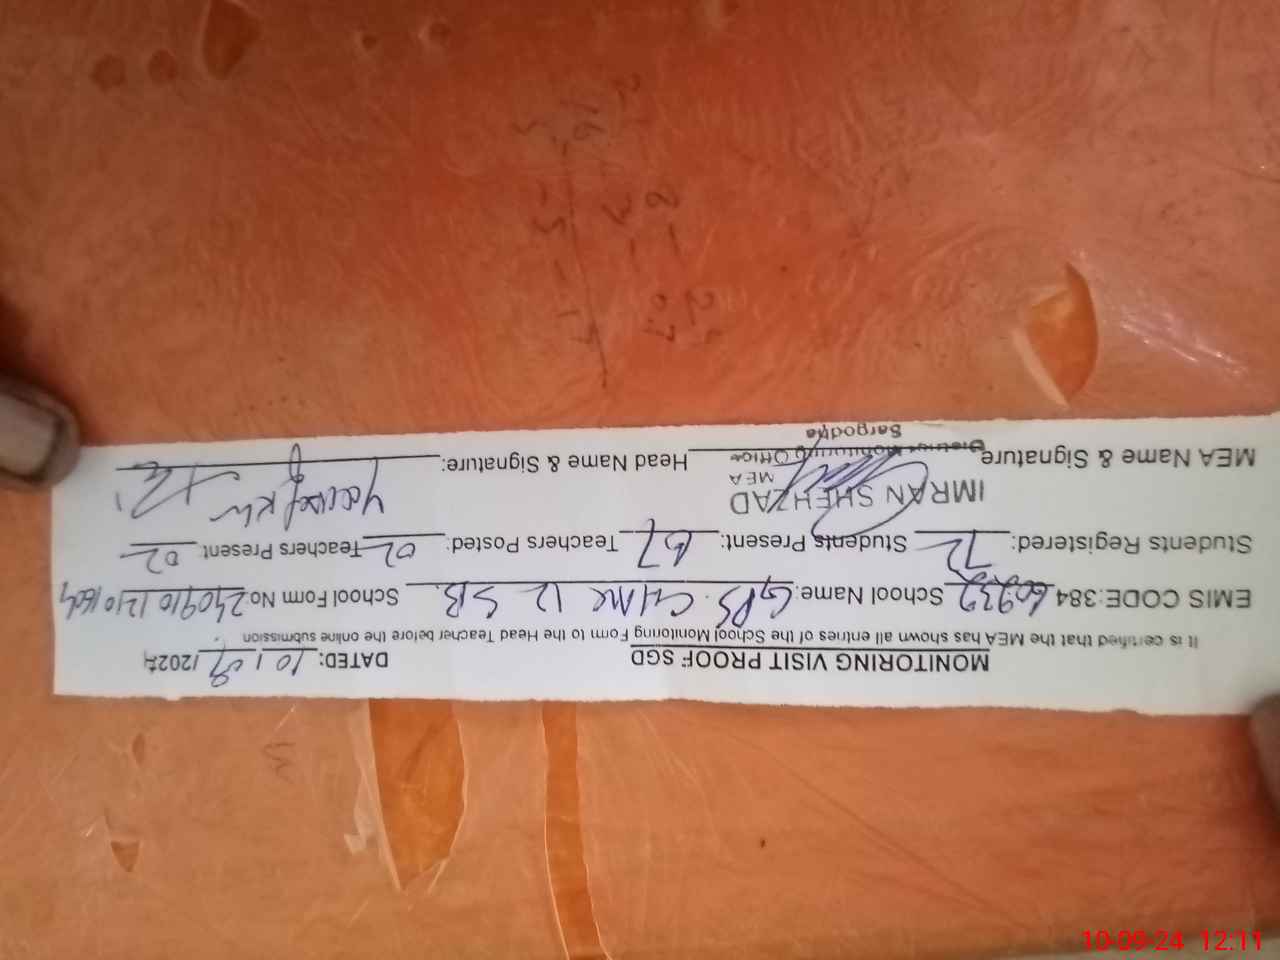 MONITORING VISIT PROOF SGD DATED: 10 / 09 /2024
It is certified that the MEA has shown all entries of the School Monitoring Form to the Head Teacher before the online submission
EMIS CODE:384 School Name: GPS. CHAK 12 SB. School Form No:
Students Registered: 72 Students Present: 67 Teachers Posted: 02 Teachers Present: 02
IMRAN SHEHZAD
MEA
MEA Name & Signature District Monitoring Office Head Name & Signature:
Sargodha
10-09-24 12:11